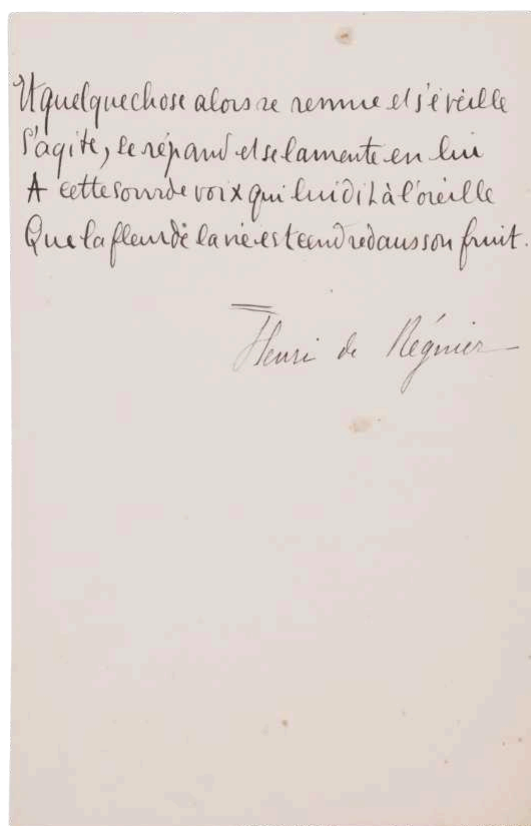 Et quelque chose alors se remue et s'éveille
S'agite, se répand et se lamente en lui
A cette sourde voix qui lui dit à l'oreille
Que la fleur de la vie est cendre dans son fruit.
Henri de Régnier